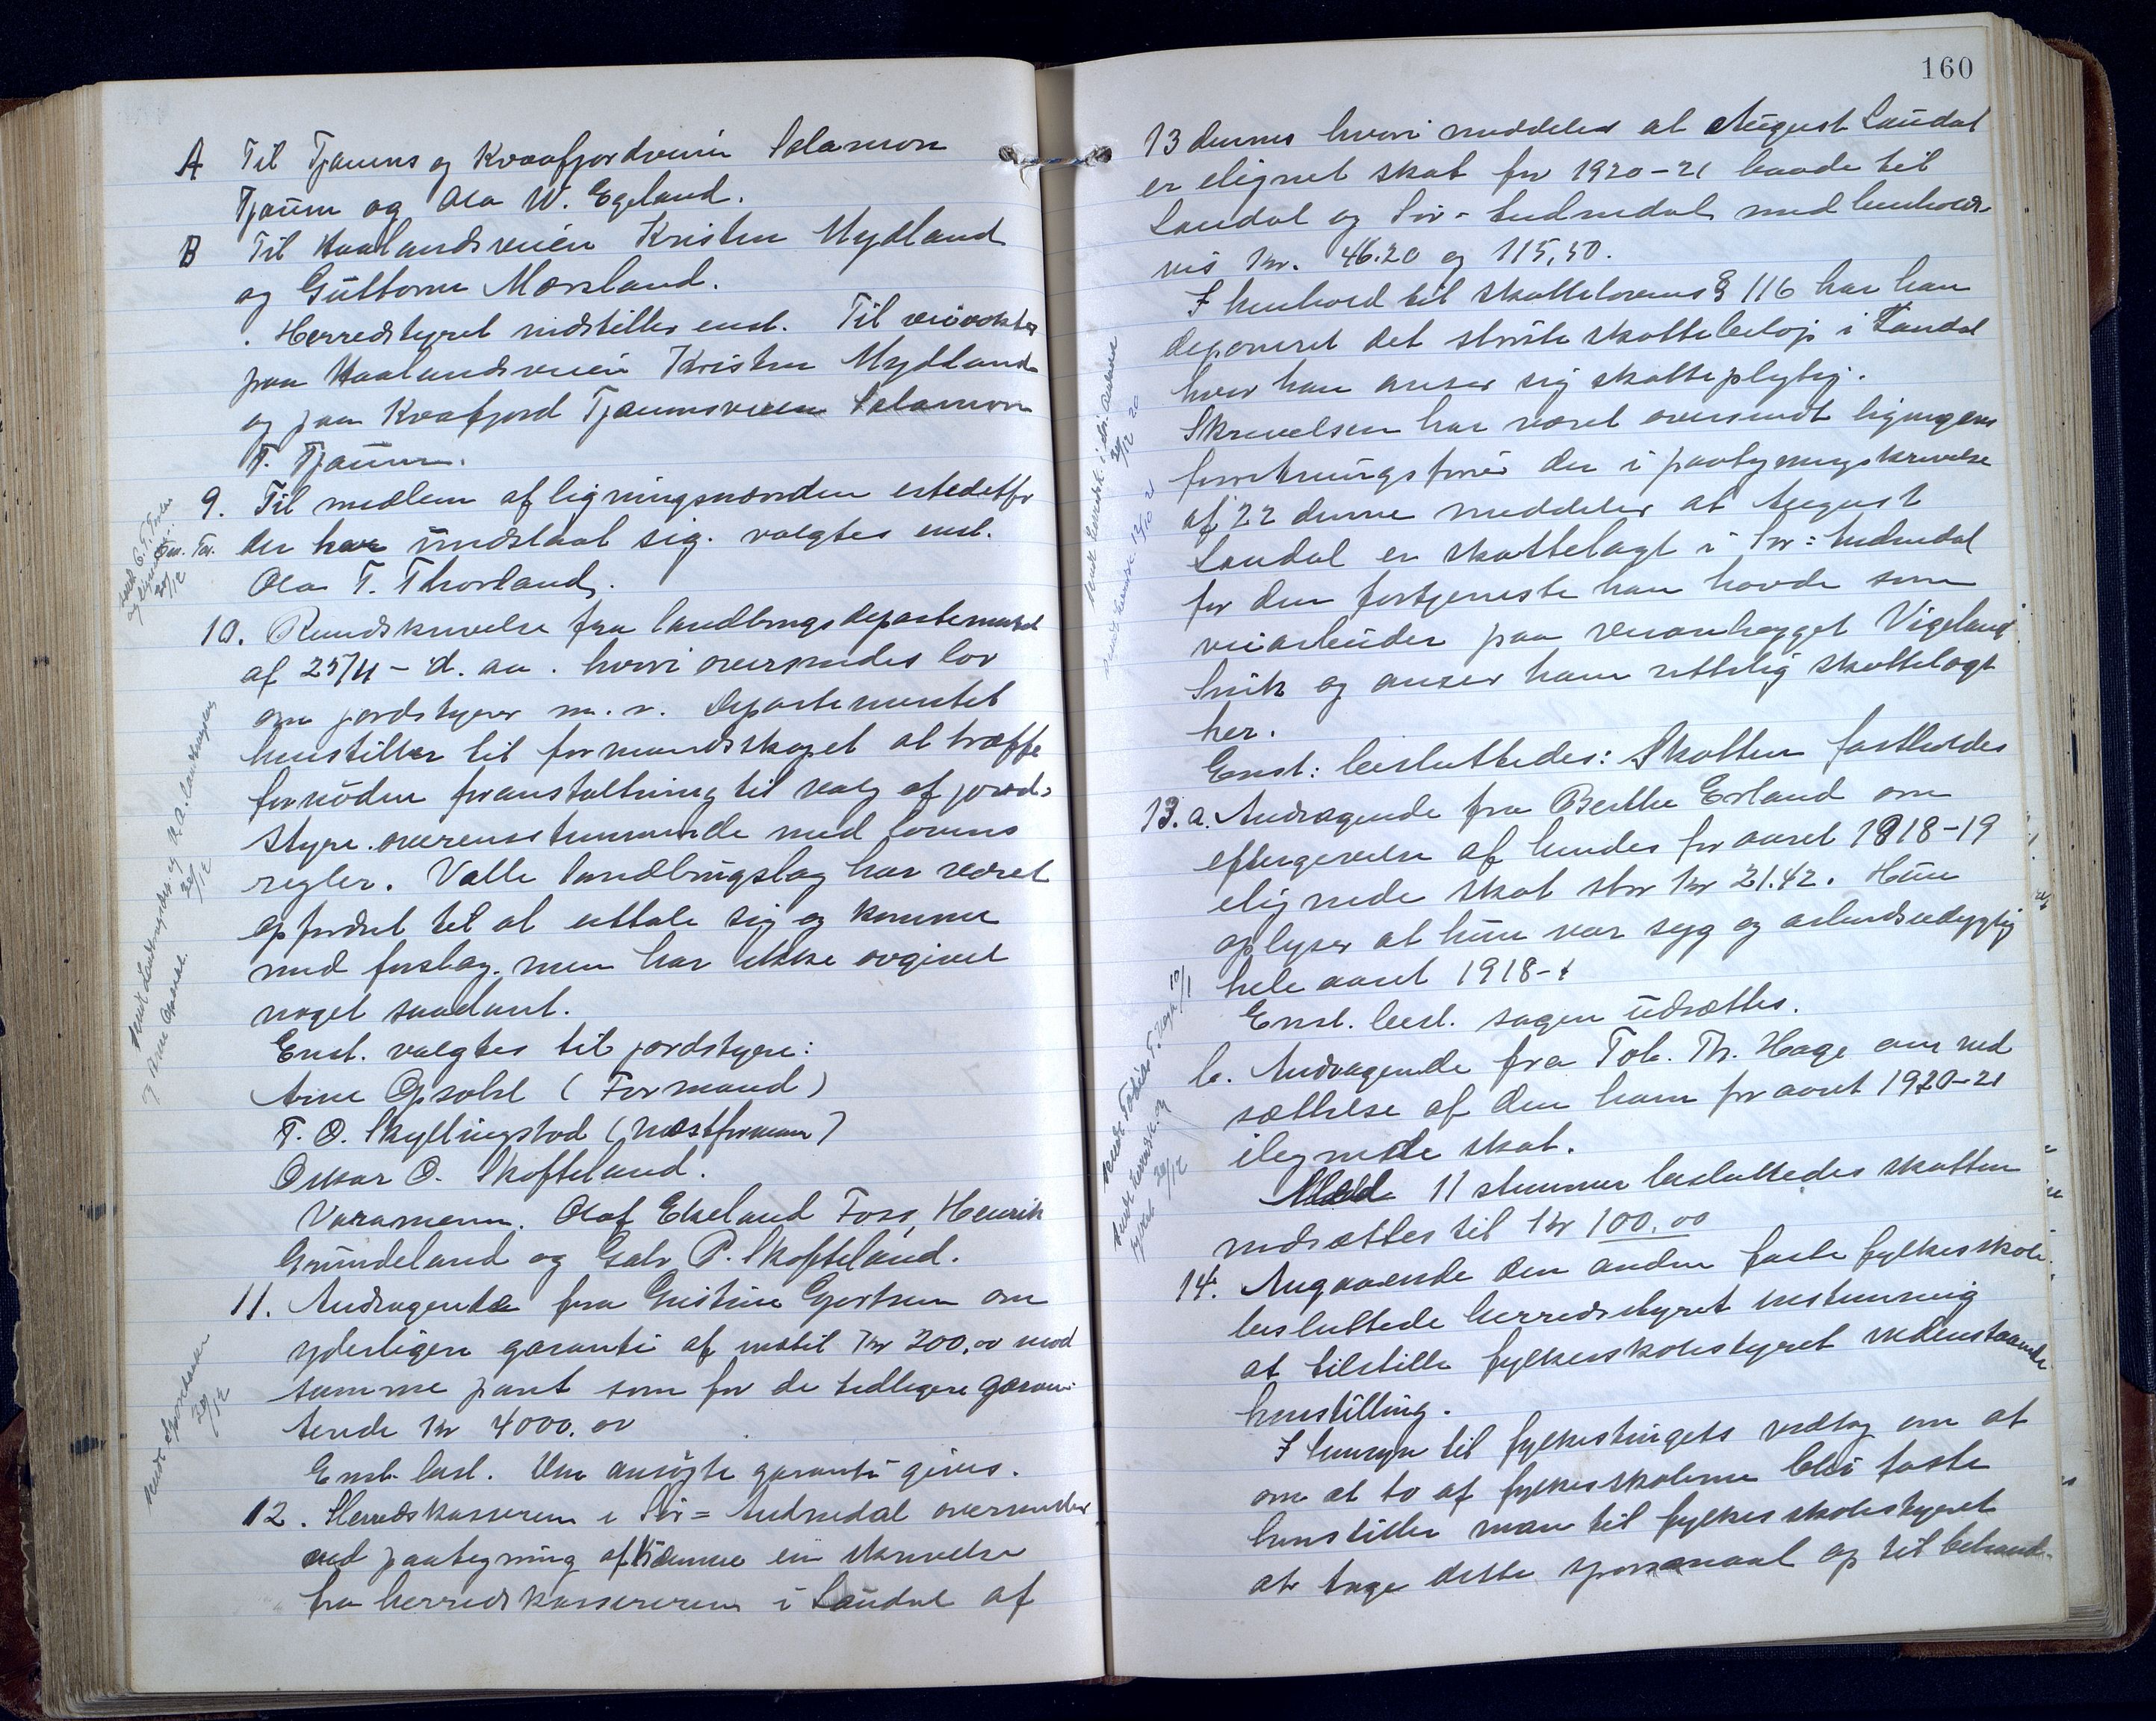 A Til Tjaums og Kvaafjordveien Salamon
Tjaum og Ola W. Egeland.
B Til Haalandsveien Kristen Mydland
og Guttorm Mersland.
Herredstyret indstiller enst. Til veivokter
paa Haalandsveien Kristen Mydland
og paa Kvafjord Tjaumsveien Salamon
T. Tjaum.
9. Til medlem af ligningsnævnden istedetfor
der har undslaat sig. valgtes enst.
Ola T. Thorland.
10. Rundskrivelse fra landbrugsdepartementet
af 25/11 - d. aa. hvori oversendes lov
om jordstyrer m.v. Departementet
henstiller til formandskapet at træffe
fornøden foranstaltning til valg af jord-
styre overensstemmende med lovens
regler. Valle landbrugslag har været
opfordret til at uttale sig og komme
med forslag. men har ikke avgivet
noget saadant.
Enst. valgtes til jordstyre:
Arne Opsahl (Formand)
T. O. Skyllingstad (Næstforman)
Oskar O. Skofteland.
Varamenn. Olaf Ekeland Foss, Henrik
Grundeland og Galv P. Skofteland.
11. Andragende fra Gustine Gjertsen om
yderligere garanti af indtil Kr 200,00 mod
samme pant som for de tidligere garan-
terede Kr 4000.00
Enst. besl. Den ansøgte garanti gives.
12. Herredskassereren i Sør=Audnedal oversender
ved paategning af denne en skrivelse
fra herredskassereren i Laudal af
160
13 dennes hvori meddeles at August Laudal
er ilignet skat for 1920-21 baade til
Laudal og Sør-Audnedal med henholds-
vis Kr. 46.20 og 115,50.
I henhold til skattelovens § 116 har han
deponeret det største skattebeløp i Laudal
hvor han anser sig skattepligtig.
Skrivelsen har været oversendt ligningens
forretningsfører der i paategningskrivelse
af 22 denne meddeler at August
Laudal er skattelagt i Sør=Audnedal
for den fortjeneste han havde som
veiarbeider paa veianlægget Vigeland
Svik og anser ham rettelig skattelagt
her.
Enst: besluttedes: Skatten fastholdes
13. a. Andragende fra Berthe Erland om
eftergivelse af hendes for aaret 1918-19
ilignede skat stor kr 21.42. Hun
oplyser at hun var syg og arbeidsudygtig
hele aaret 1918-
Enst. besl. sagen udsættes.
b. Andragende fra Tob. Th. Hage om ned
sættelse af den ham for aaret 1920-21
ilignede skat.
Med 11 stemmer besluttedes skatten
nedsættes til Kr 100.00
14. Angaaende den anden faste fylkesskole
besluttede herredsstyret enstemmig
at tilstille fylkesskolestyret nedenstaaende
henstilling.
I hensyn til fylkestingets vedtag om at
om at to af fylkesskolerne blir faste
henstiller man til fylkesskolestyret
at tage dette spørsmaal op til behand-